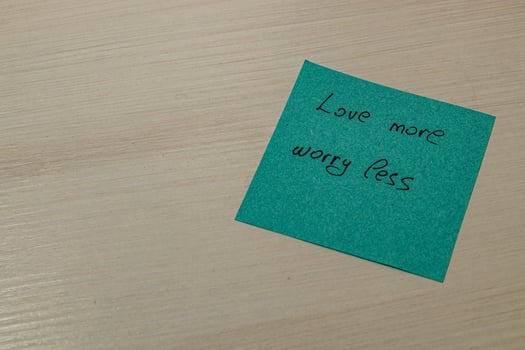 Love more
worry less